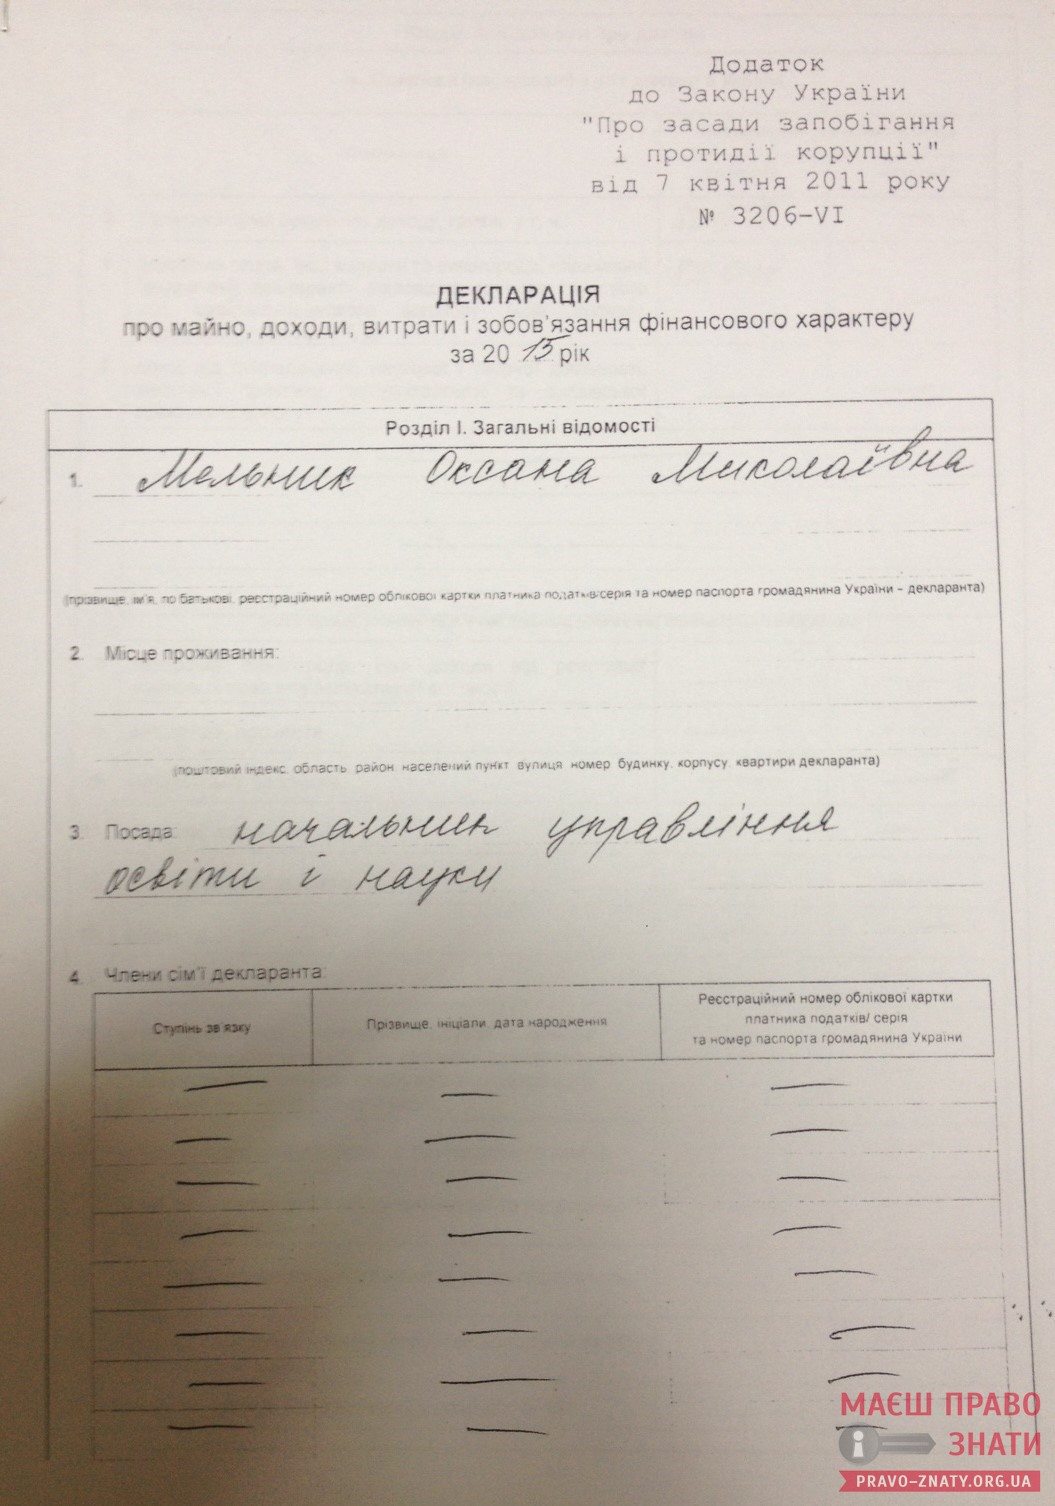 Додаток
до Закону України
"Про засади запобігання
і протидії корупції"
від 7 квітня 2011 року
№ 3206-VI
ДЕКЛАРАЦІЯ
про майно, доходи, витрати і зобов'язання фінансового характеру
за 20 15 рік
Розділ I. Загальні відомості
1. Мельник Оксана Миколаївна
(прізвище, ім'я, по батькові, реєстраційний номер облікової картки платника податків/серія та номер паспорта громадянина України – декларанта)
2. Місце проживання:
(поштовий індекс, область, район, населений пункт, вулиця, номер будинку, корпусу, квартири декларанта)
3. Посада: начальник управління
освіти і науки
4. Члени сім'ї декларанта:
Ступінь зв'язку
Прізвище, ініціали, дата народження
Реєстраційний номер облікової картки
платника податків/ серія
та номер паспорта громадянина України
МАЄШ ПРАВО
ЗНАТИ
PRAVO-ZNATY.ORG.UA